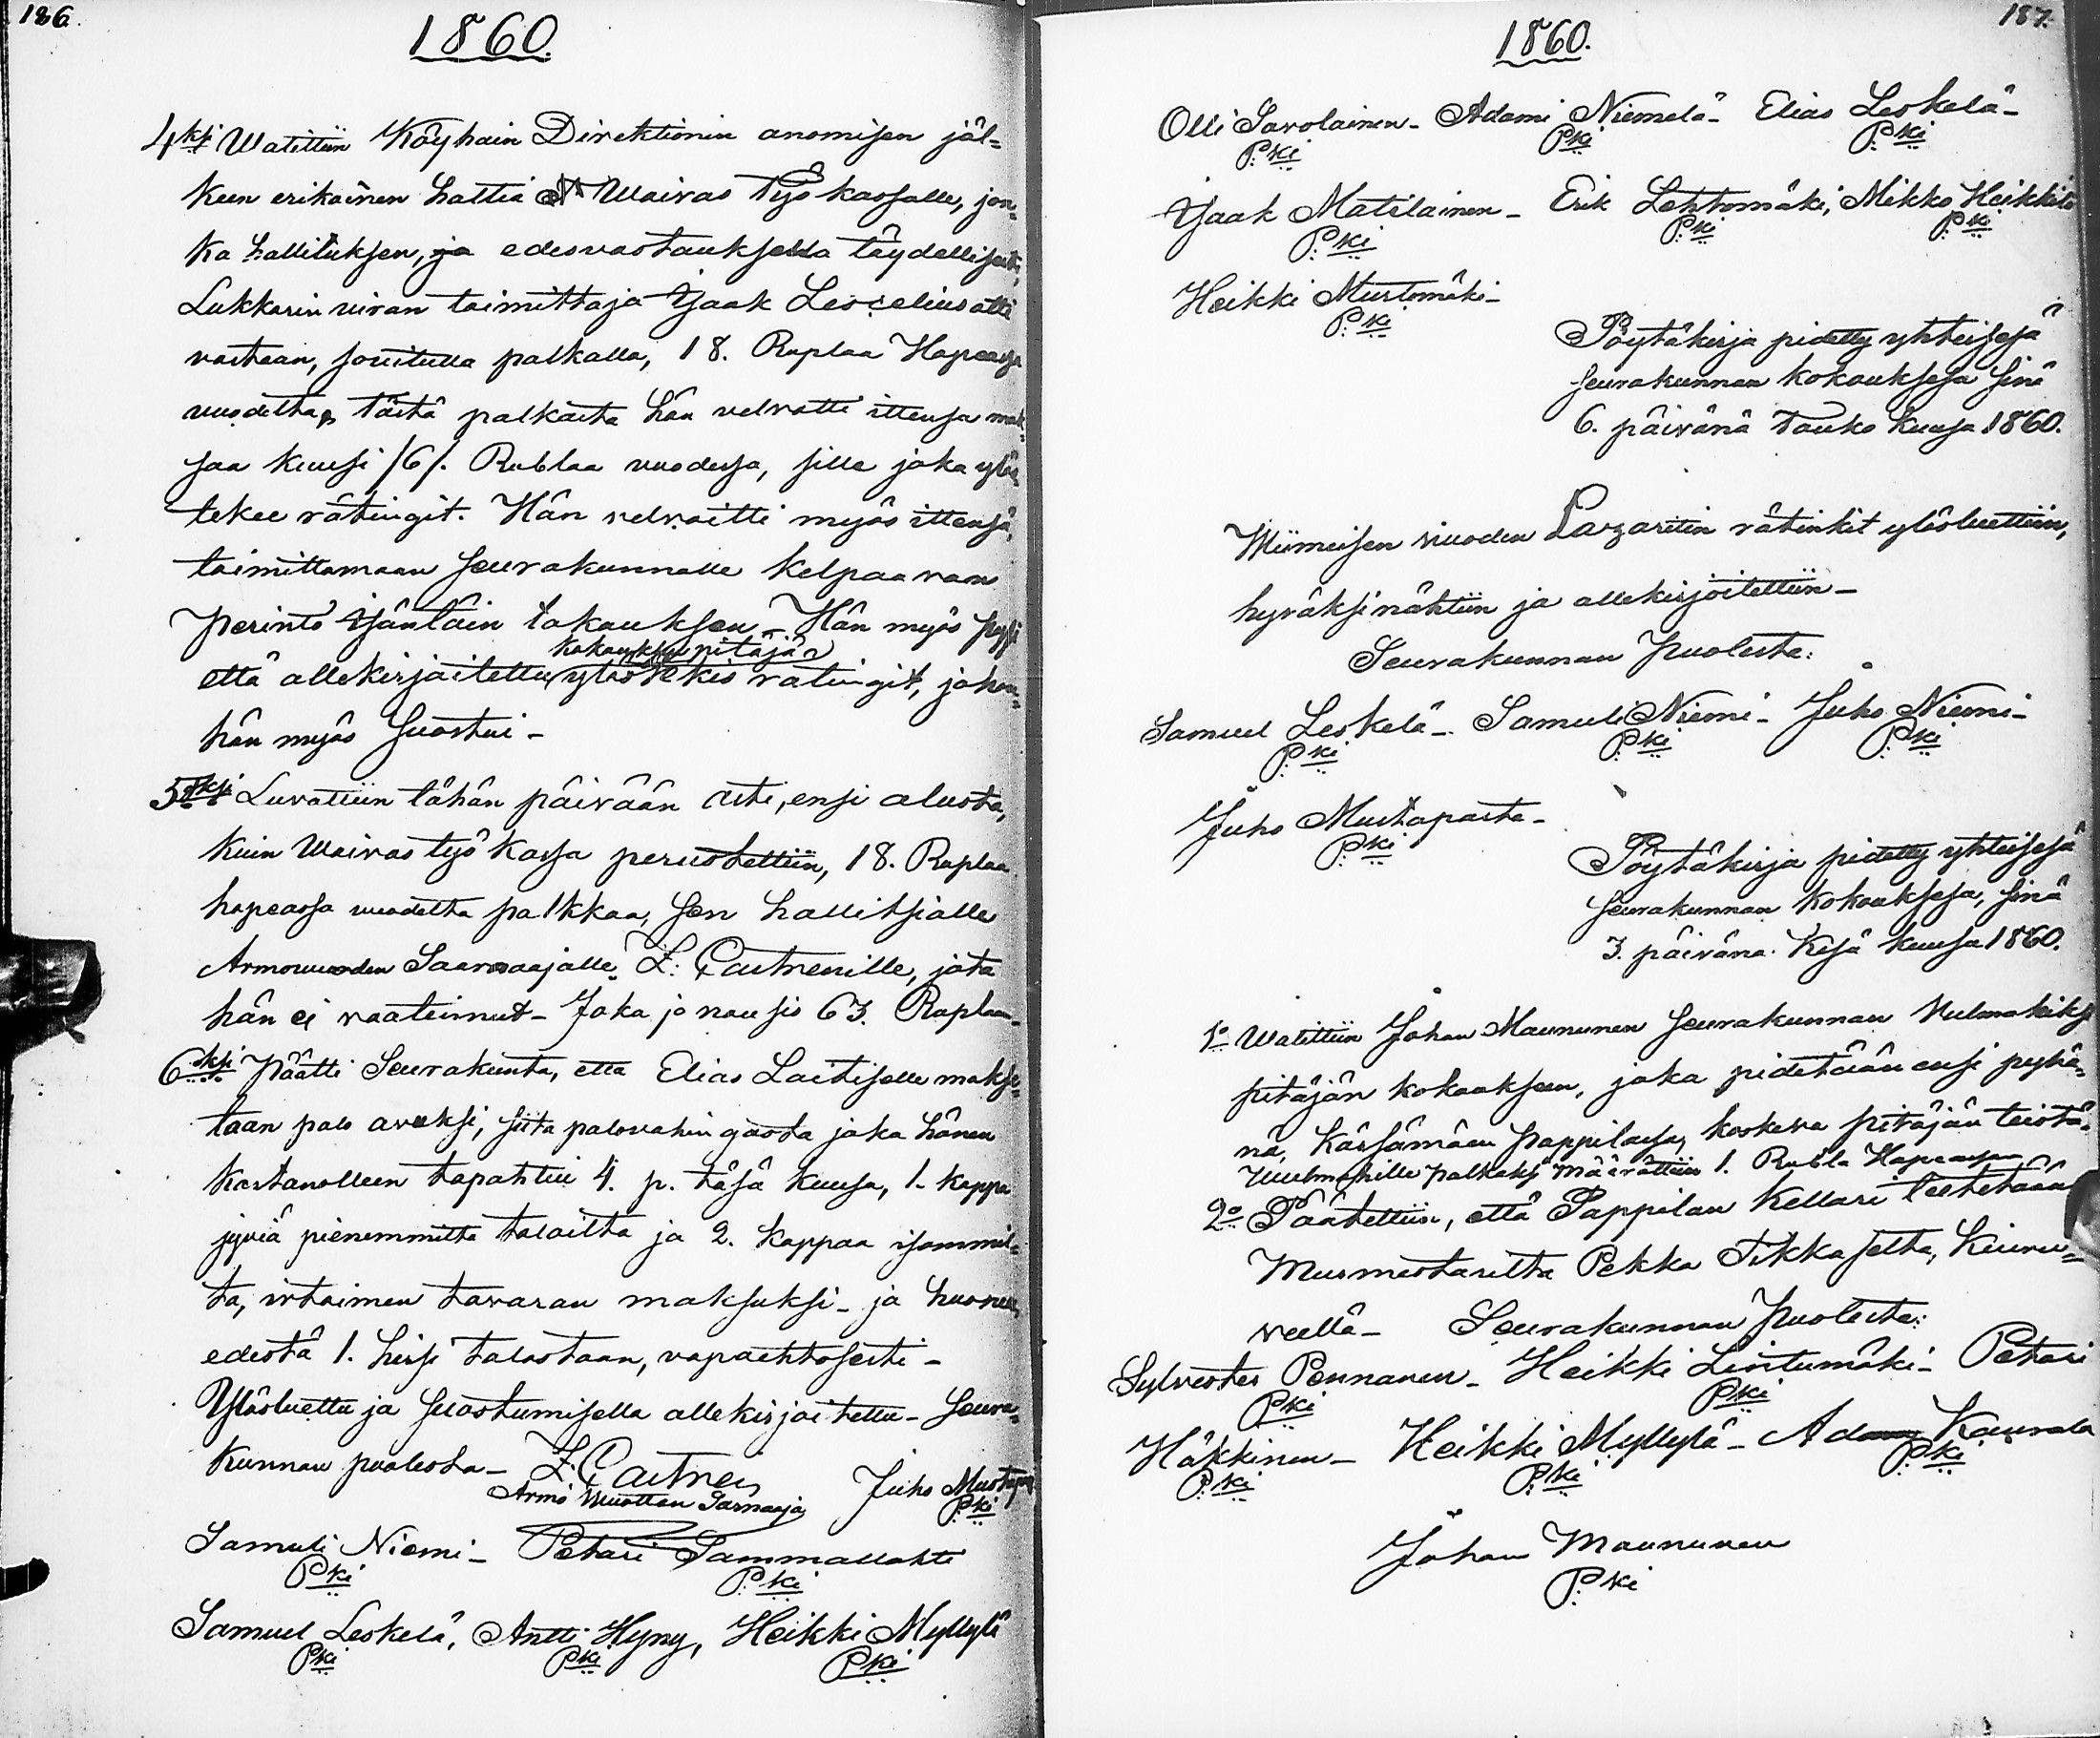 186.
1860.
4ksi Walittiin Köyhain Direktionin anomisen jäl=
keen erikäinen haltia Waivas Työ kassalle, jon=
ka hallituksen, ja edesvastauksella täydellisesti,
Lukkarin viran toimittaja Isaak Leocelius otti
vastaan, sovitulla palkalla, 18. Ruplaa Hopeassa
vuodelta, tästä palkasta hän velvotti ittensa mak=
saa kuusi /6/. Rublaa vuodessa, sille joka ylös
tekee rätingit. Hän velvoitti myös ittensä,
toimittamaan seurakunnalle kelpaavan
perintö isäntäin takauksen_ Hän myös pysi
kokouksen pitäjä
että allekirjoitettu ylös tekis rätingit, johon=
hän myös suostui_
5ksi Luvattiin tähän päivään asti, ensi alusta,
kuin Waivas työ kassa perustettiin, 18. Ruplaa
hopeassa vuodelta palkkaa, sen hallitsialle
Armovuoden Saarnaajalle, Z: Castrenille, jota
hän ei vaatinnut_ Joka jo nousis 63. Ruplaan_
6ksi Päätti Seurakunta, että Elias Laitiselle makse=
taan palo avuksi, siitä palovahingosta joka hänen
kartanolleen tapahtui 4. p. täsä kuusa, 1. kappa
jyviä pienemmiltä taloilta ja 2. kappaa isommil=
ta, irtaimen tavaran maksuksi_ ja huonen
edestä 1. hirsi talostaan, vapaehtosesti_
Ylösluettu ja suostumisella allekirjoitettu_ Seura=
kunnan puolesta_ Z. Castren Juho Mustapa
Armo Vuotten Sarnaaja P:ki
Samuli Niemi_ Petari Sammallahti
P:ki P:ki
Samuel Leskelä, Antti Hyny, Heikki Myllylä
P:ki P:ki P:ki
187.
1860.
Olli Savolainen_ Adami Niemelä_ Elias Leskelä_
P:ki P:ki P:ki
Isaak Matilainen_ Erik Lehtomäki, Mikko Heikkilä
P:ki P:ki P:ki
Heikki Mustomäki_
P:ki
Pöytäkirja pidetty yhteisesä
seurakunnan kokouksesa sinä
6. päivänä Touko kuusa 1860.
Wiimeisen vuoden Lazaretin rätinkit ylösluettiin,
hyväksi nähtiin ja allekirjoitettiin_
Seurakunnan puolesta:
Samuel Leskelä_ Samuli Niemi_ Juho Niemi_
P:ki P:ki P:ki
Juho Mustaparta_
P:ki
Pöytäkirja pidetty yhteisesä
seurakunnan kokouksesa, sinä
3. päivänä Kesä kuusa 1860.
1o Walittiin Johan Maununen seurakunnan Vulmahiksi
pitäjän kokoukseen, joka pidetään ensi pyhä=
nä, Kärsämäen Pappilassa, koskeva pitäjän teistä_
Wulmahille palkaksi määrättiin 1. Rubla Hopeassa
2o Päätettiin, että Pappilan Kellari teetetään
Murmestarilta Pekka Tikkaselta, Kiuru=
veellä_ Seurakunnan puolesta:
Sylvester Pennanen_ Heikki Lintumäki_ Petari
P:ki P:ki
Häkkinen_ Heikki Myllylä_ Adam Kaurala
P:ki P:ki P:ki
Johan Maununen
P:ki